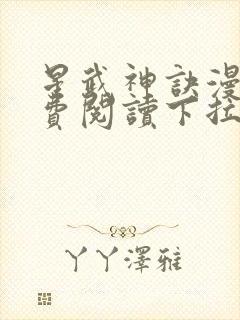 星武神訣漫
費閱讀下拉
丫丫澤雅